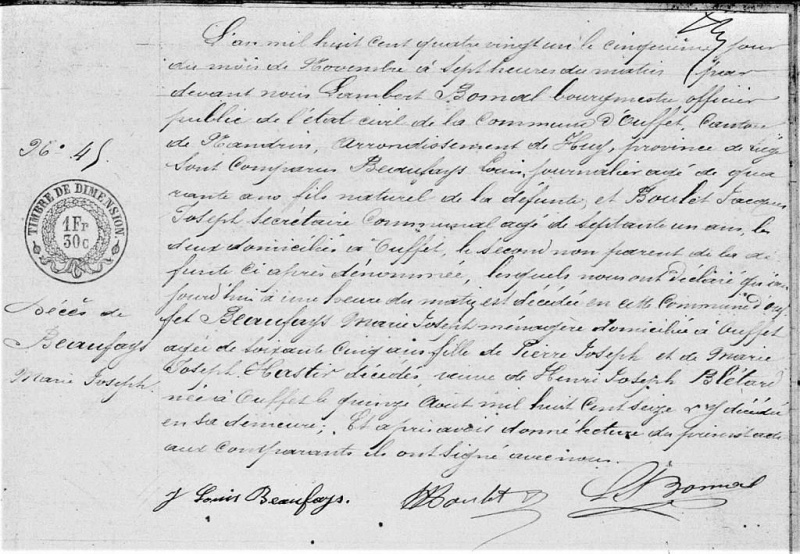 L'an mil huit cent quatre vingt un le cinquième jour
du mois de Novembre à Sept heures du matin par
devant nous Lambert Bomal bourgmestre officier
public de l'état civil de la Commune d'Ouffet, Canton
de Nandrin, Arrondissement de Huy, province de Liége
Sont Comparus Beaufays Louis, journalier agé de qua
rante ans fils naturel de la défunte, et Boulet Jacques
Joseph Secrétaire Communal agé de septante un ans, les
deux domiciliés à Ouffet, le second non parent de la dé
funte ci après dénommée, lesquels nous ont déclaré qu'au
jourd'hui à une heure du matin est décédée en cette Commune d'Ouf
fet Beaufays Marie Joseph ménagère domiciliée à Ouffet
agée de soixante cinq ans fille de Pierre Joseph et de Marie
Joseph décédés, veuve de Henri Joseph Blétard
née à Ouffet le quinze Août mil huit Cent Seize & y décédée
en sa demeure; Et après avoir donné lecture du présent acte
aux Comparants ils ont signé avec nous.
J Louis Beaufays.
Boulet
Bomal
N° 45
TIMBRE DE DIMENSION
1 Fr
30 c
Décès de
Beaufays
Marie Joseph